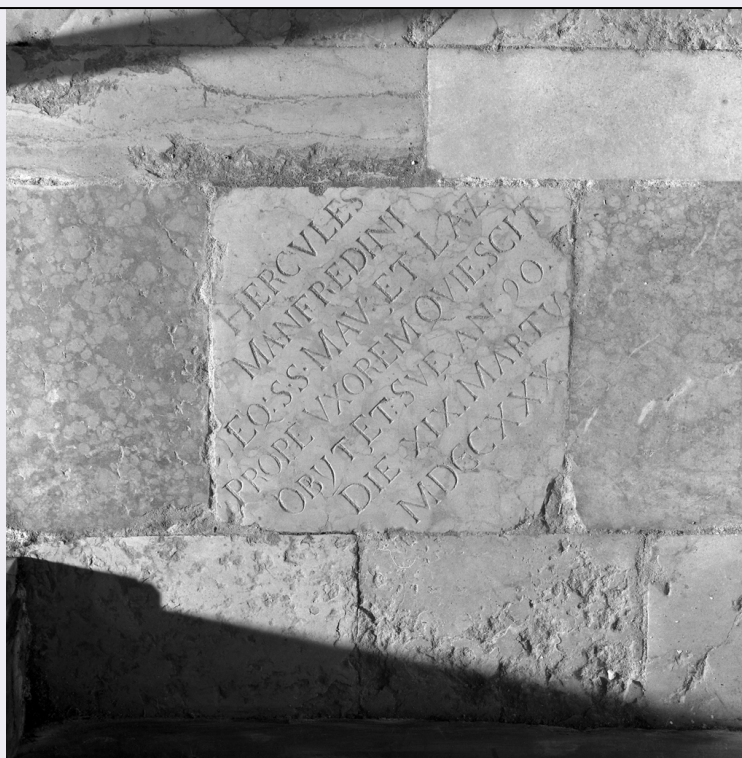 HERCVLES
MANFREDINI
EQ: S.S. MAV: ET LAZ
PROPE VXOREM QVIESCIT
OBIJT ET: SVE. AN. 90.
DIE XIX MARTII
MDCCXXX